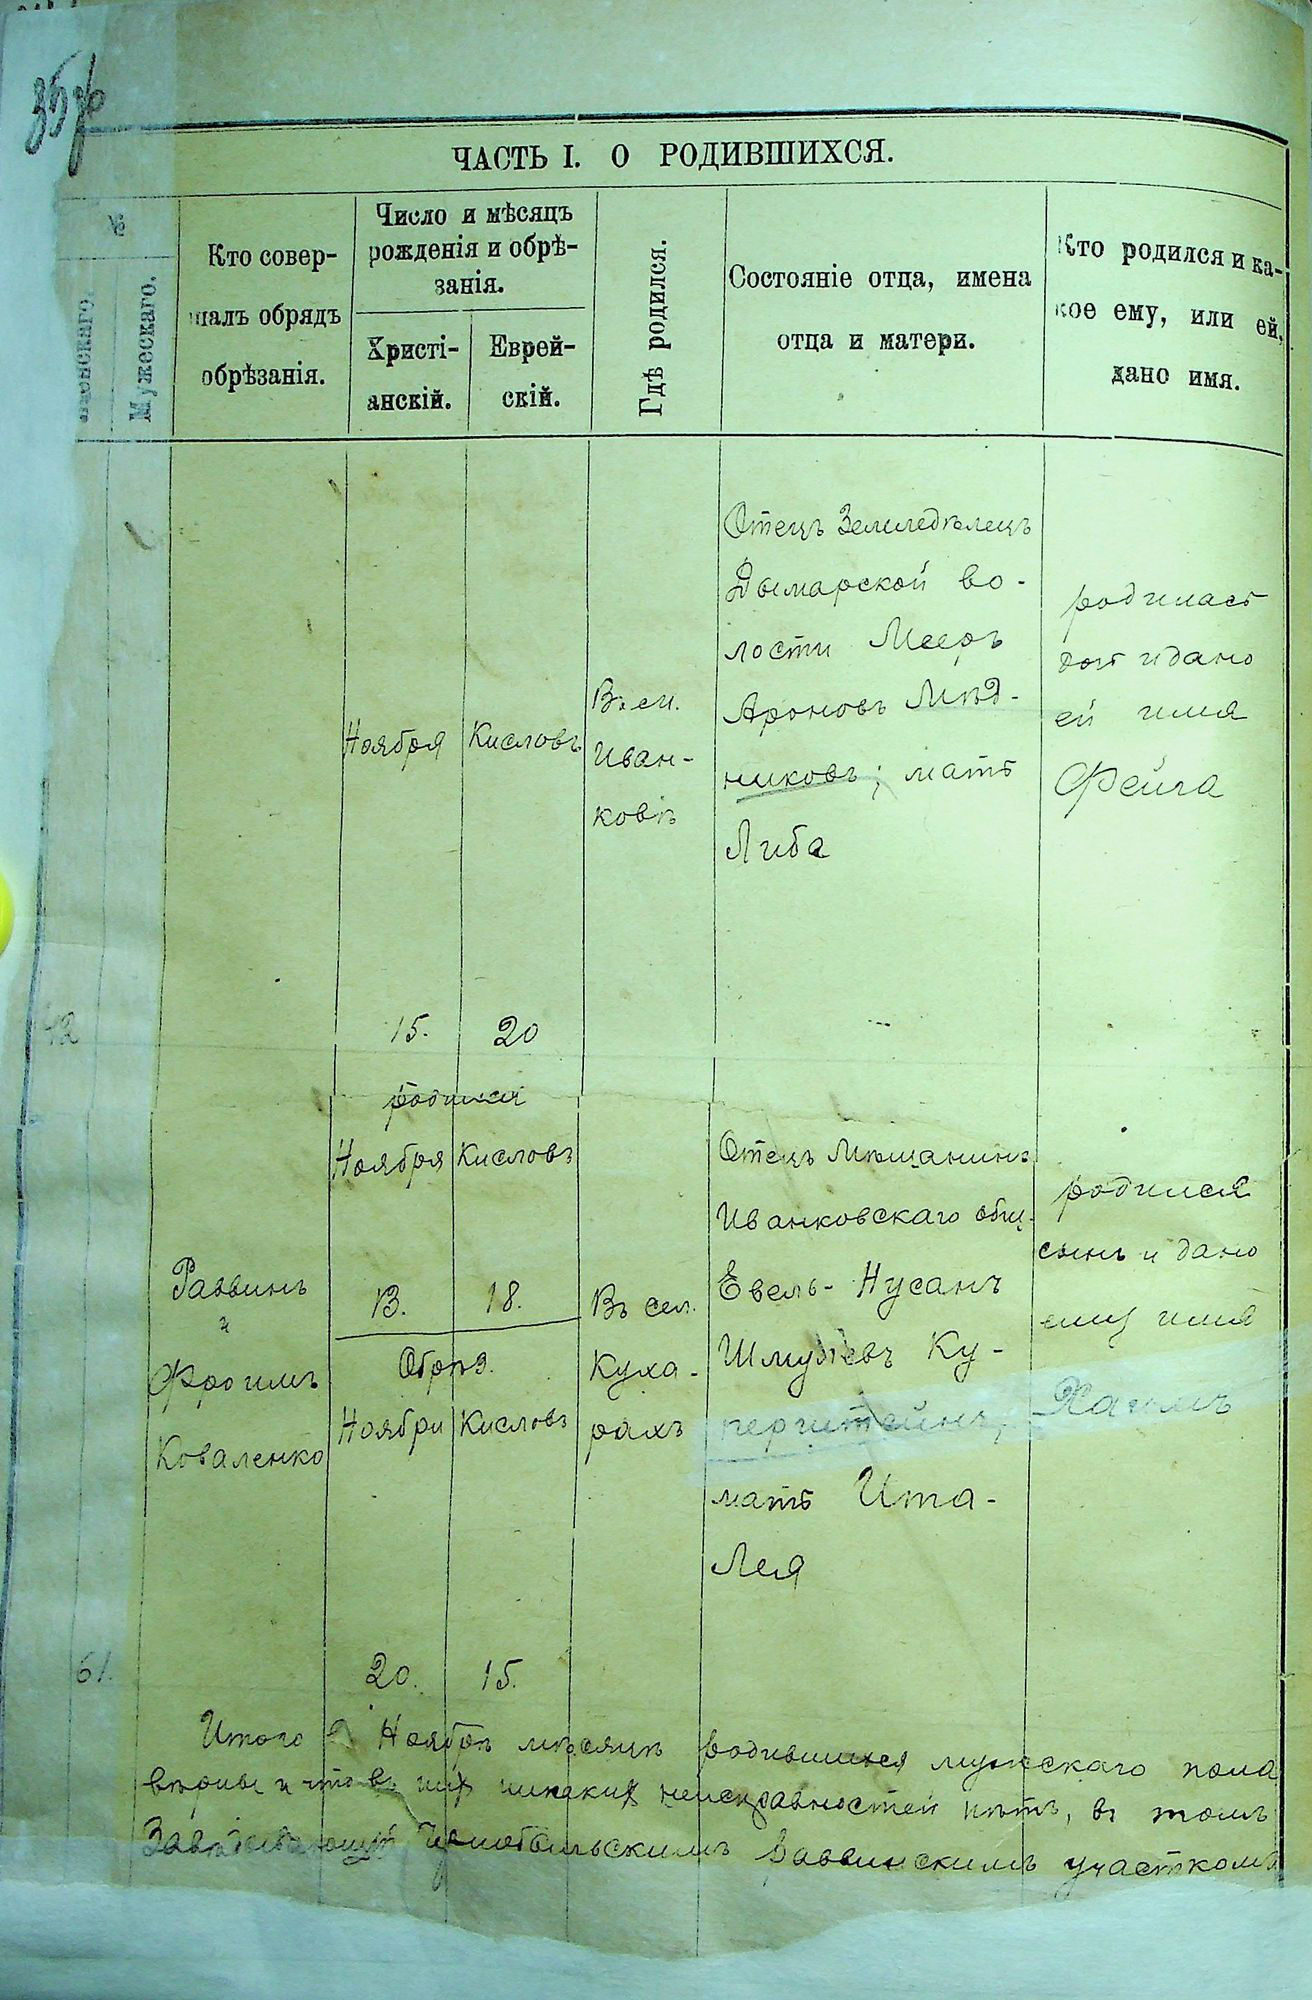 ЧАСТЬ I. О РОДИВШИХСЯ.
№
Мужескаго.
Кто совер-
шалъ обрядъ
обрѣзанія.
Число и мѣсяцъ
рожденія и обрѣ-
занія.
Христі-
анскій.
Еврей-
скій.
Гдѣ родился.
Состояніе отца, имена
отца и матери.
Кто родился и ка-
кое ему, или ей,
дано имя.
Ноября
Кисловъ
В. м.
Иван-
ковѣ
Отецъ Земледѣлецъ
Дымарской во-
лости Мееръ
Ароновъ Мѣд-
никовъ; мать
Либа
родилась
дочь и дано
ей имя
Фейга
42
15.
20
родился
Ноября
Кисловъ
13.
18.
Обрѣз.
Ноября
Кисловъ
Раввинъ
и
Фроимъ
Коваленко
Въ сел.
Куха-
рахъ
Отецъ Мѣщанинъ
Иванковскаго общ.
Евель-Нусанъ
Шмулевъ Ку-
перштейнъ,
мать Ита-
Лея
родился
сынъ и дано
ему имя
Хаимъ
61.
20.
15.
Итого Ноябрѣ мѣсяцѣ родившихся мужескаго пола
вѣрны и что въ них никаких неисправностей нѣтъ, въ томъ
Завѣдывающій Чернобыльскимъ раввинскимъ участкомъ